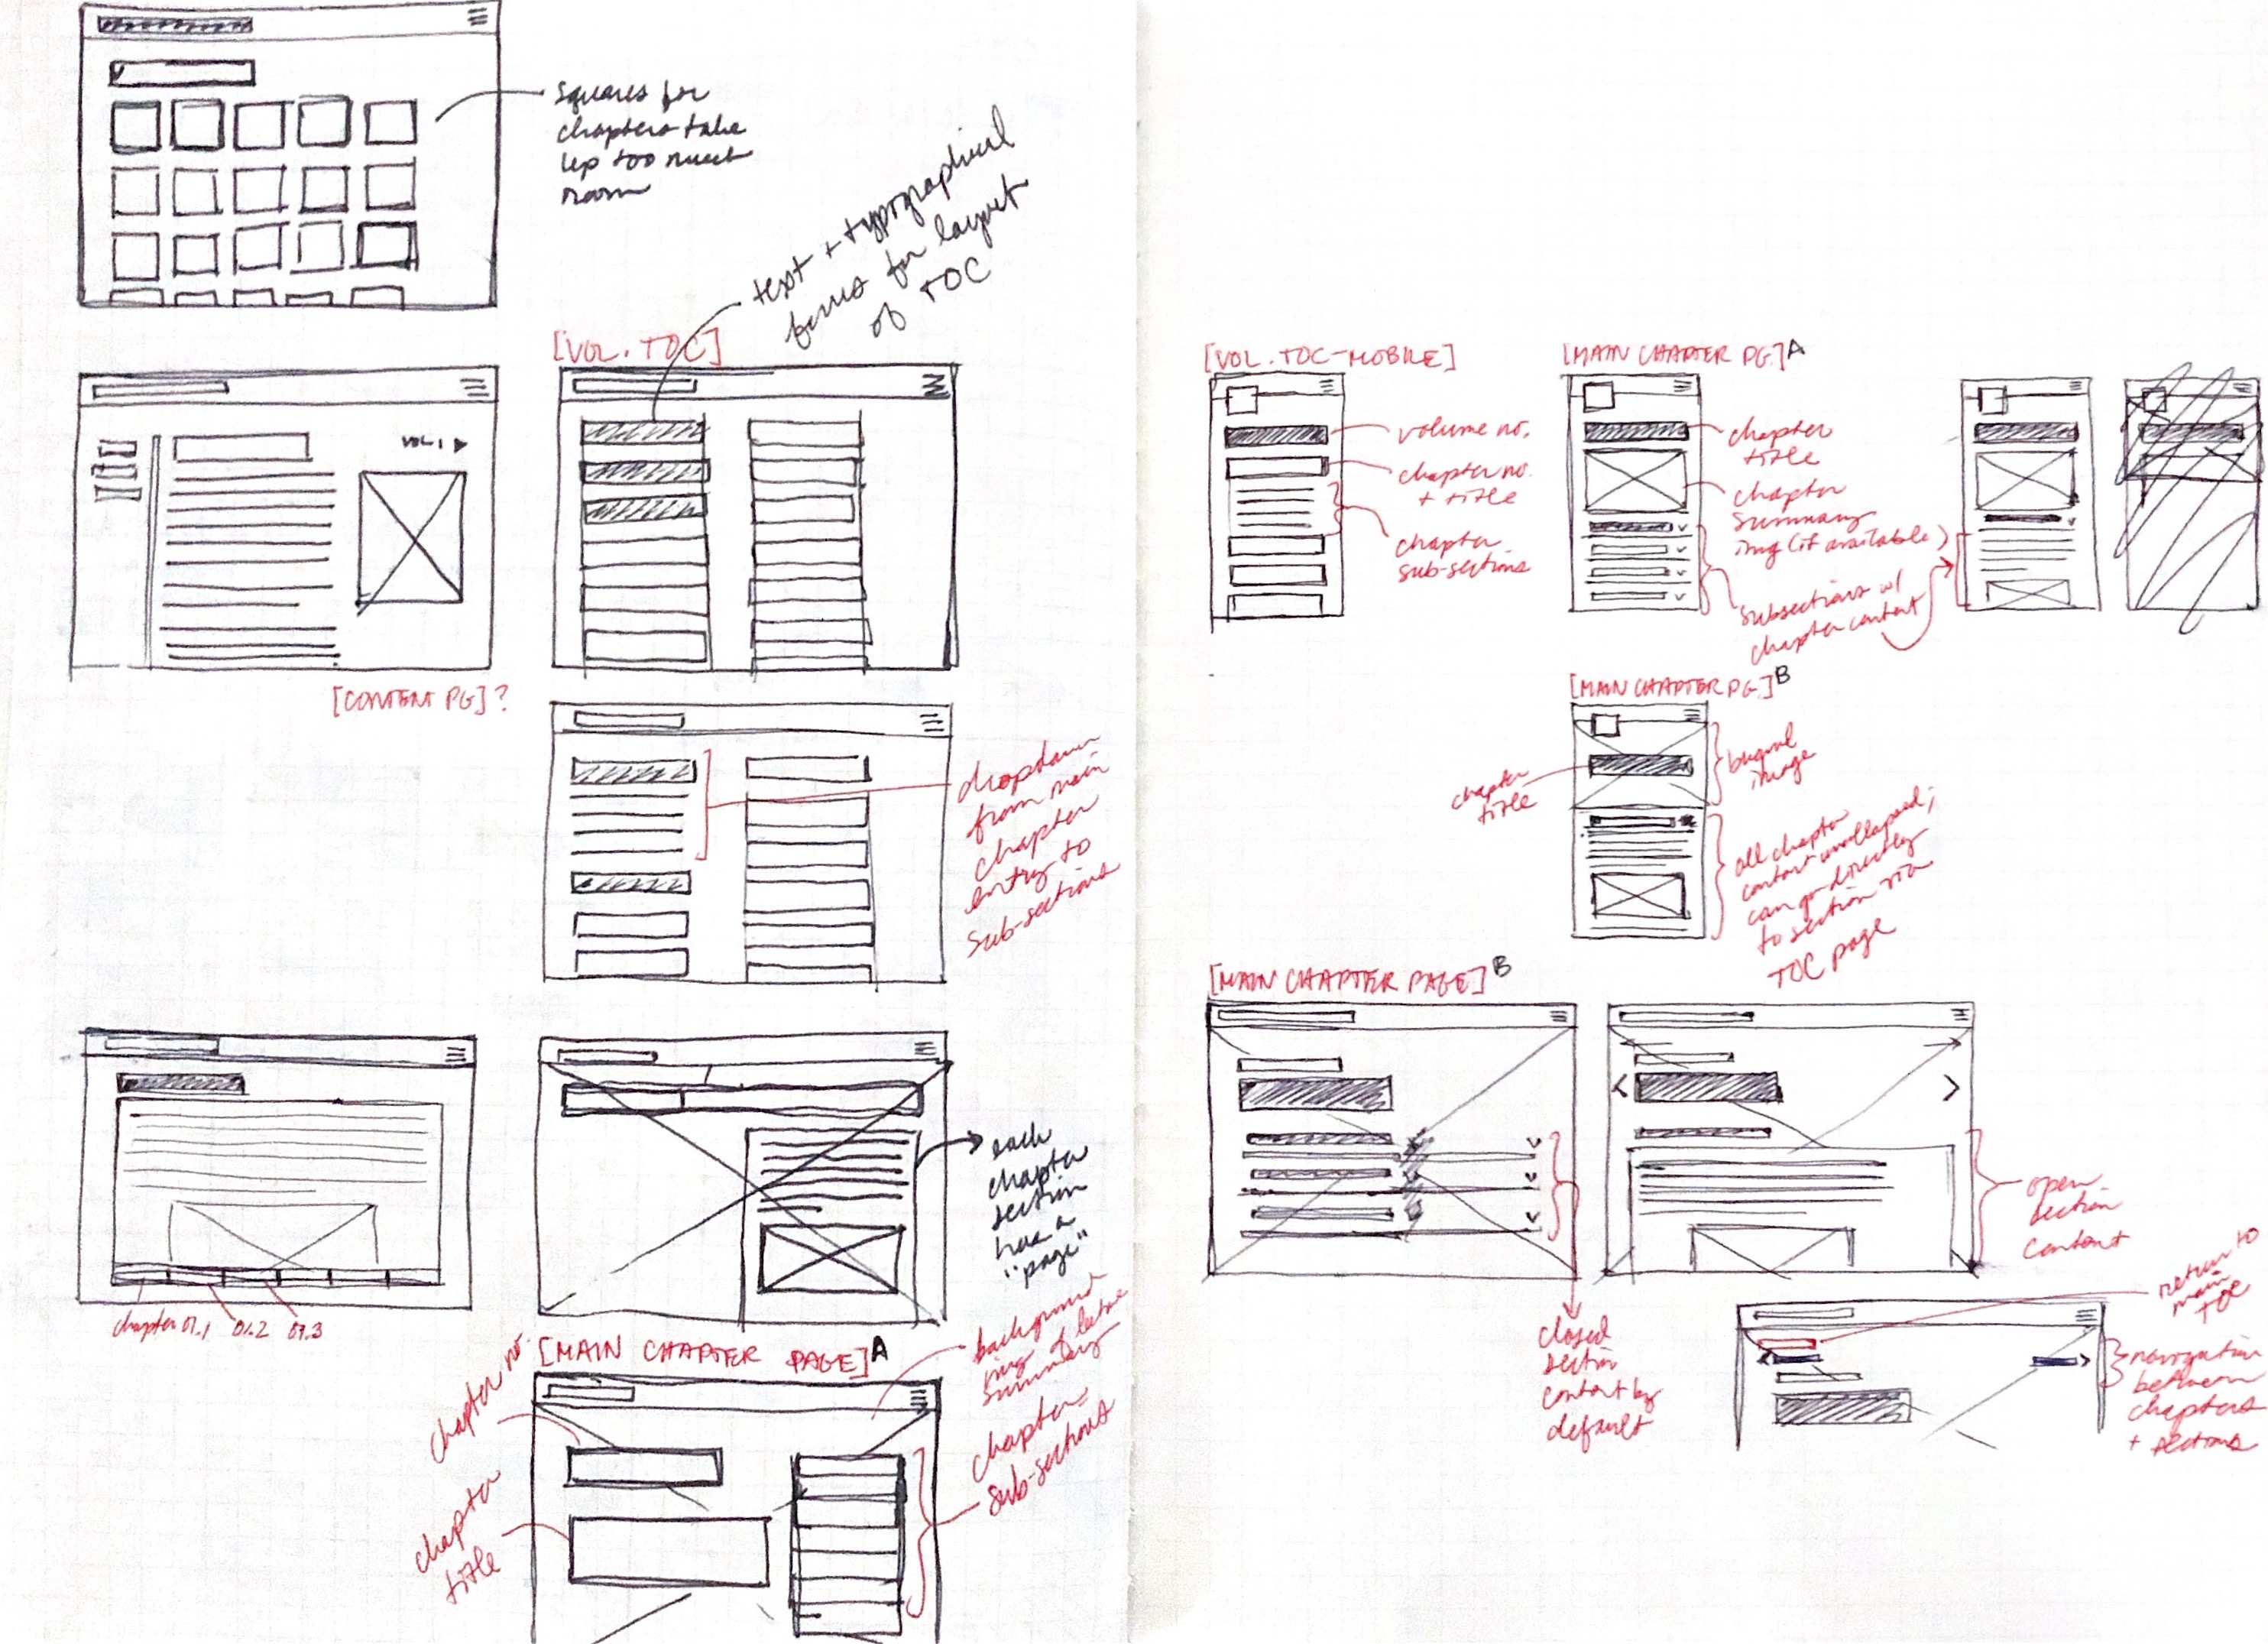 squares for
chapters take
up too much
room
text + typographical
forms for layout
of TOC
[VOL. TOC]
VOL. 1
[CONTENT PG]?
dropdown
from main
chapter
entry to
sub-sections
chapter 01.1 01.2 01.3
each
chapter
section
has a
"page"
[MAIN CHAPTER PAGE] A
background
img of
summary
chapter no.
chapter
title
chapter
sub-sections
[VOL. TOC-MOBILE]
volume no.
chapter no.
+ title
chapter
sub-sections
[MAIN CHAPTER PG] A
chapter
title
chapter
summary
img (if available)
subsections w/
chapter content
[MAIN CHAPTER PG] B
chapter
title
image
all chapter
content uncollapsed;
can go directly
to section via
TOC page
[MAIN CHAPTER PAGE] B
closed
section
content by
default
open
section
content
return to
main
TOC
navigation
between
chapters
+ sections